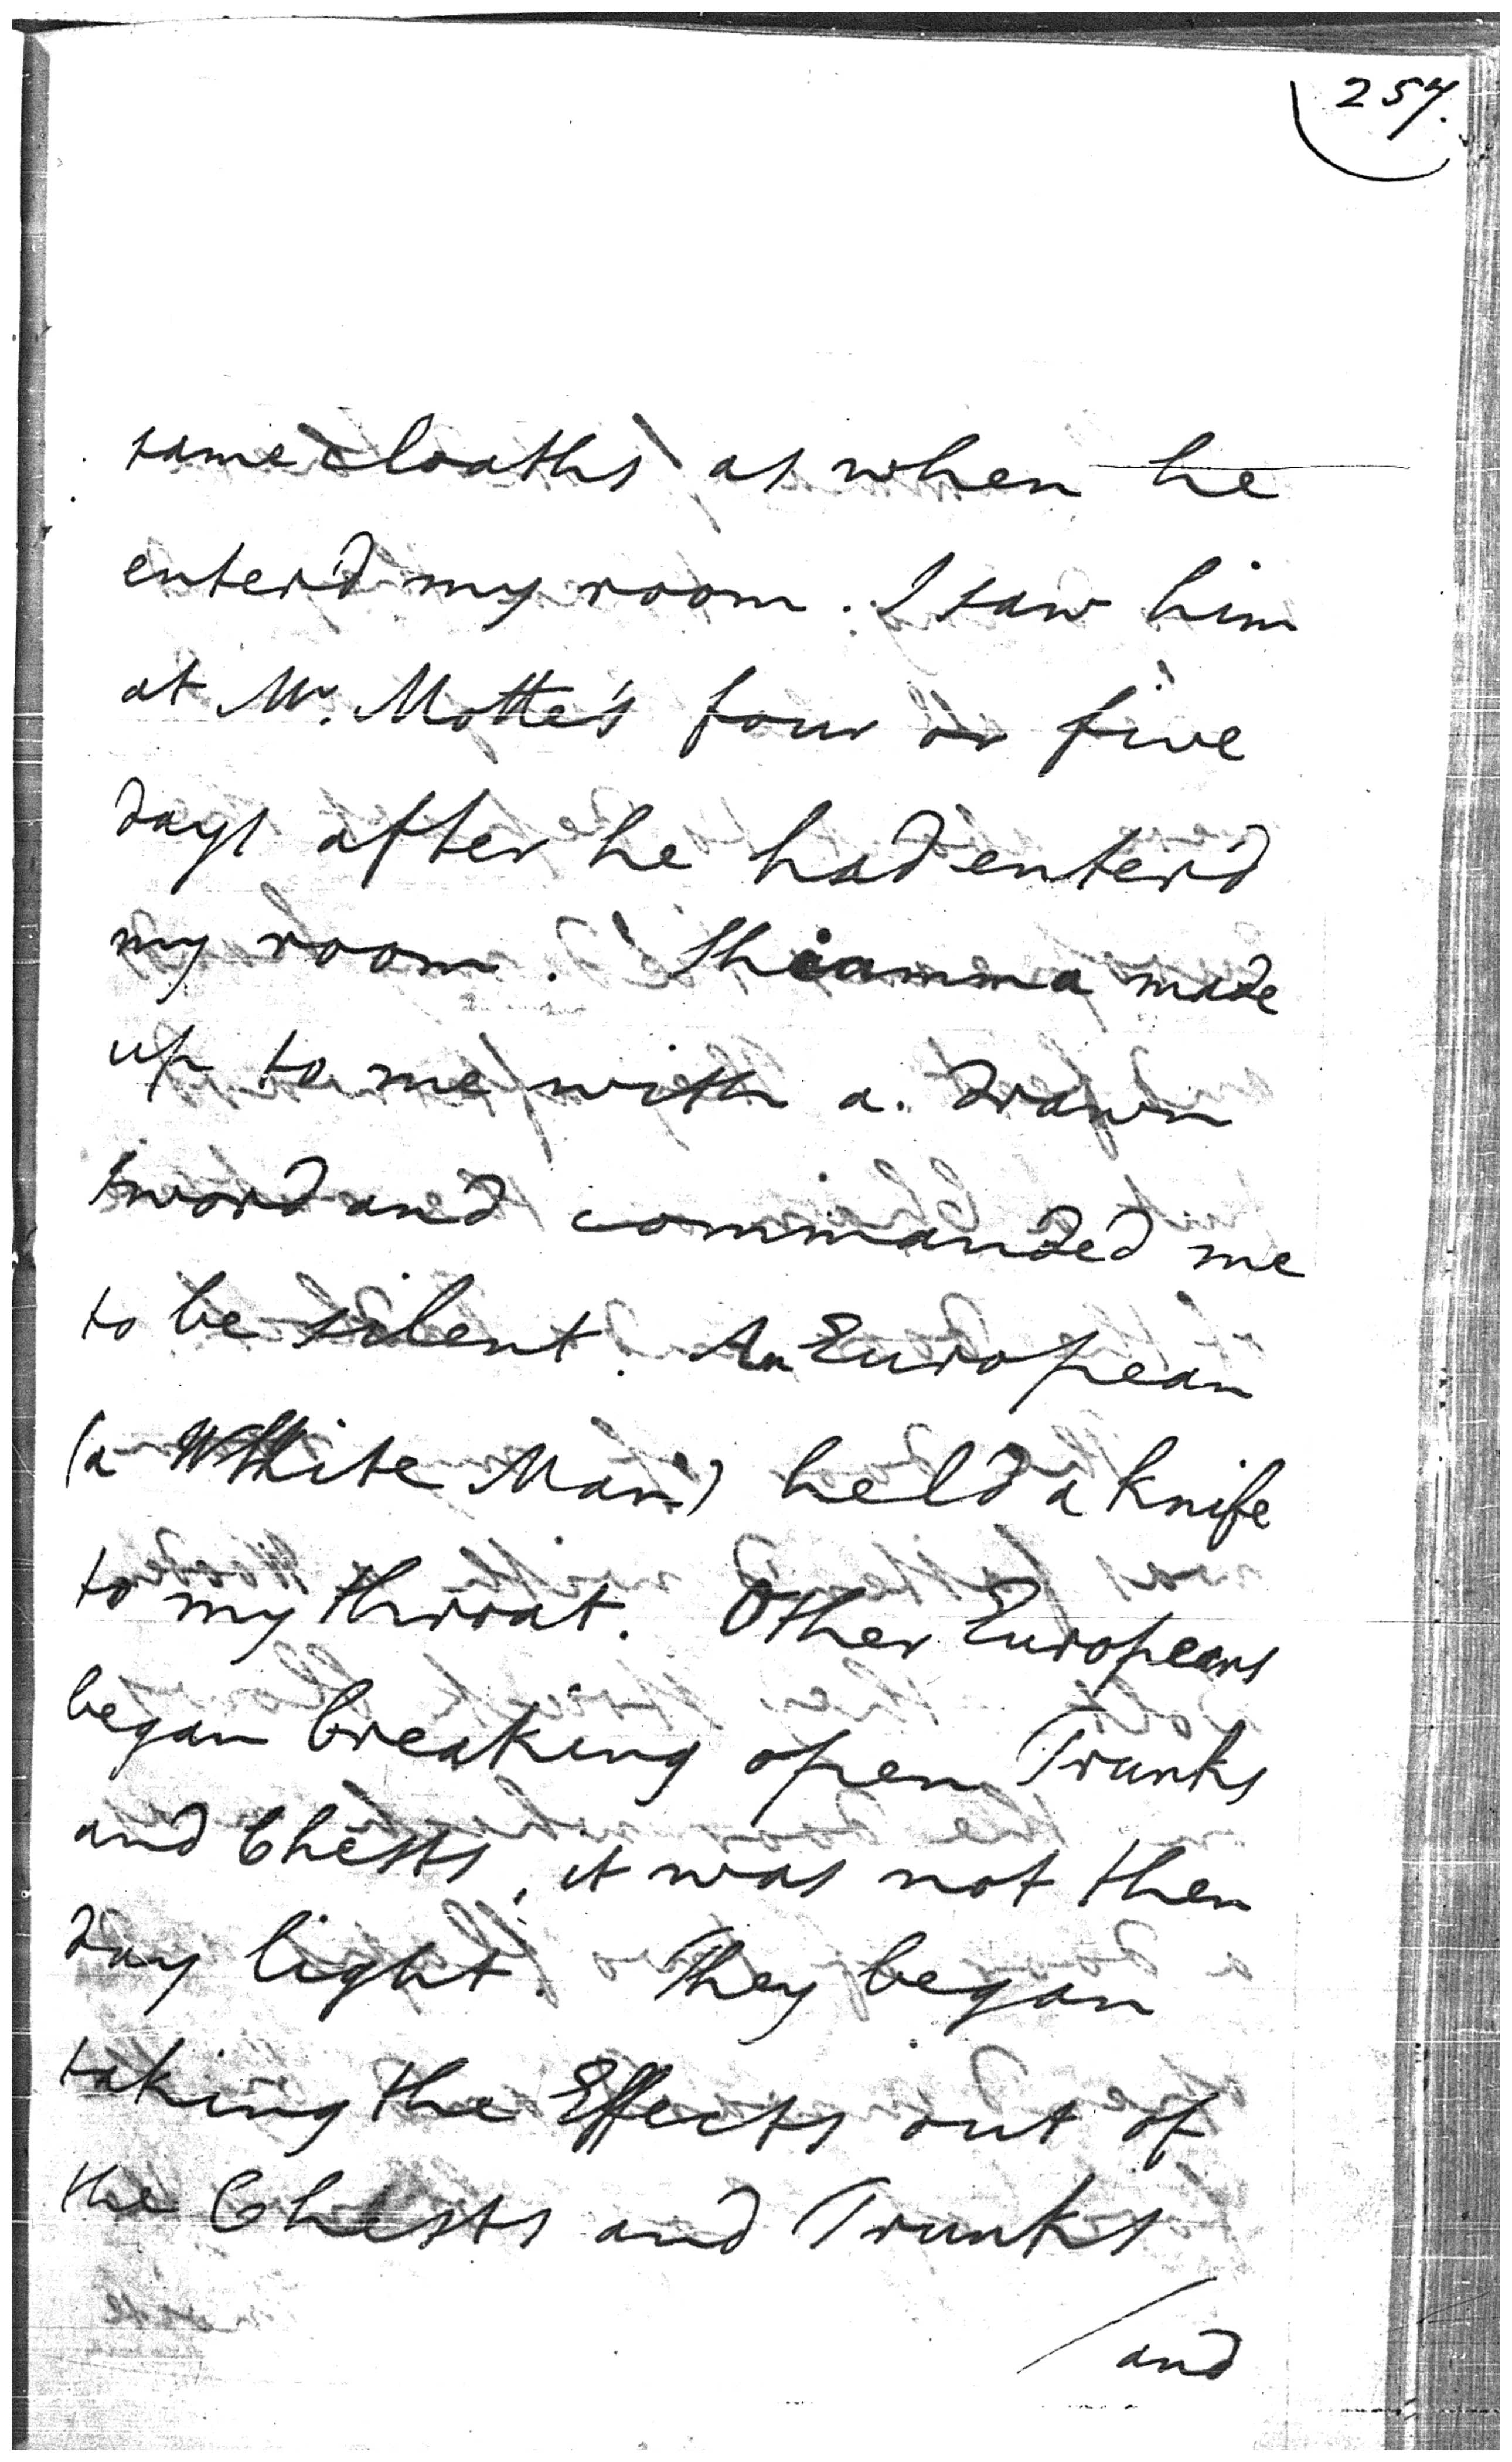 257.
same cloaths as when he
enter'd my room. I saw him
at Mr. Motte's four or five
days after he had enter'd
my room. Shiamma made
up to me with a drawn
sword and commanded me
to be silent. An European
(a White Man) held a knife
to my throat. Other Europeans
began breaking open Trunks
and Chests, it was not then
day light. They began
taking the Effects out of
the Chests and Trunks
/and